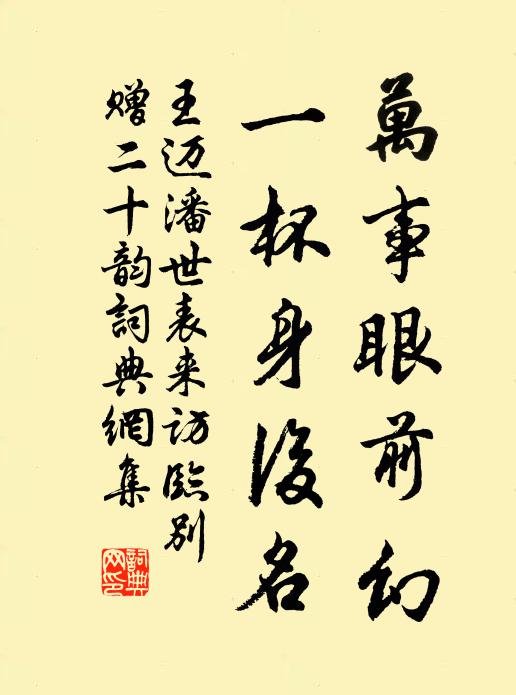 萬事眼前幻
一杯身後名
王迈潘世表来访臨别
赠二十韵詞典網集
詞典
网印